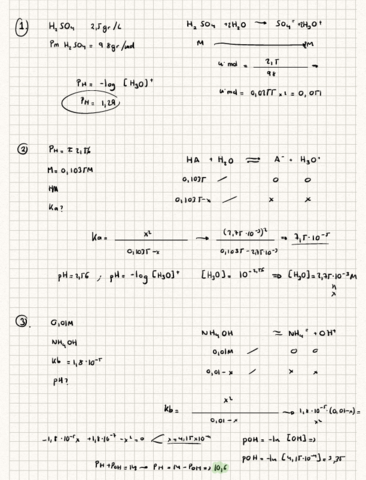 1
H₂SO₄ 2,5 gr/L
Pm H₂SO₄ = 98gr/mol
PH = -log [H₃O]⁺
PH = 1,29
H₂SO₄ + 2H₂O → SO₄⁼ + 2H₃O⁺
M M
nº mol = 2,5 / 98 =
nº mol = 0,0255 x 2 = 0,051
2
M = 0,1035M
HA
Ka?
HA + H₂O ⇌ A⁻ + H₃O⁺
0,1035 / 0 0
0,1035-x / x x
Ka = x² / 0,1035-x → (2,75·10⁻³)² / 0,1035-2,75·10⁻³ → 7,5·10⁻⁵
pH = 2,56 ; pH = -log [H₃O]⁺ [H₃O] = 10⁻²,⁵⁶ ⇒ [H₃O] = 2,75·10⁻³M
x
3.
0,01M
NH₄OH
Kb = 1,8·10⁻⁵
pH?
NH₄OH ⇌ NH₄⁺ + OH⁻
0,01M / 0 0
0,01-x / x x
Kb = x² / 0,01-x → 1,8·10⁻⁵·(0,01-x) = x²
-1,8·10⁻⁵x + 1,8·10⁻⁷ - x² = 0 < x = 4,15x10⁻⁴
pOH = -ln [OH] =>
pOH = -ln [4,15·10⁻⁴] = 3,35
PH + POH = 14 → PH = 14 - POH => 10,6